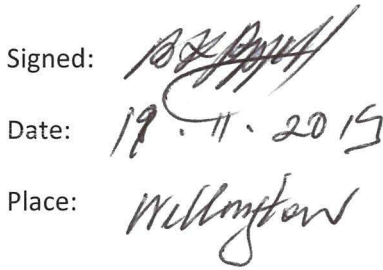 Signed:
Date: 19.11.2015
Place: Wellington